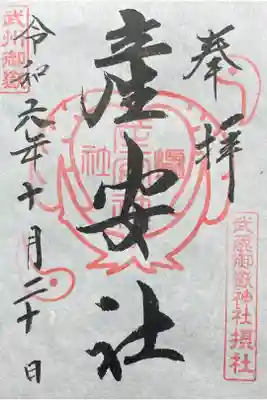 奉拝
武蔵御嶽神社摂社
産安社
武州御嶽
令和元年十月二十日